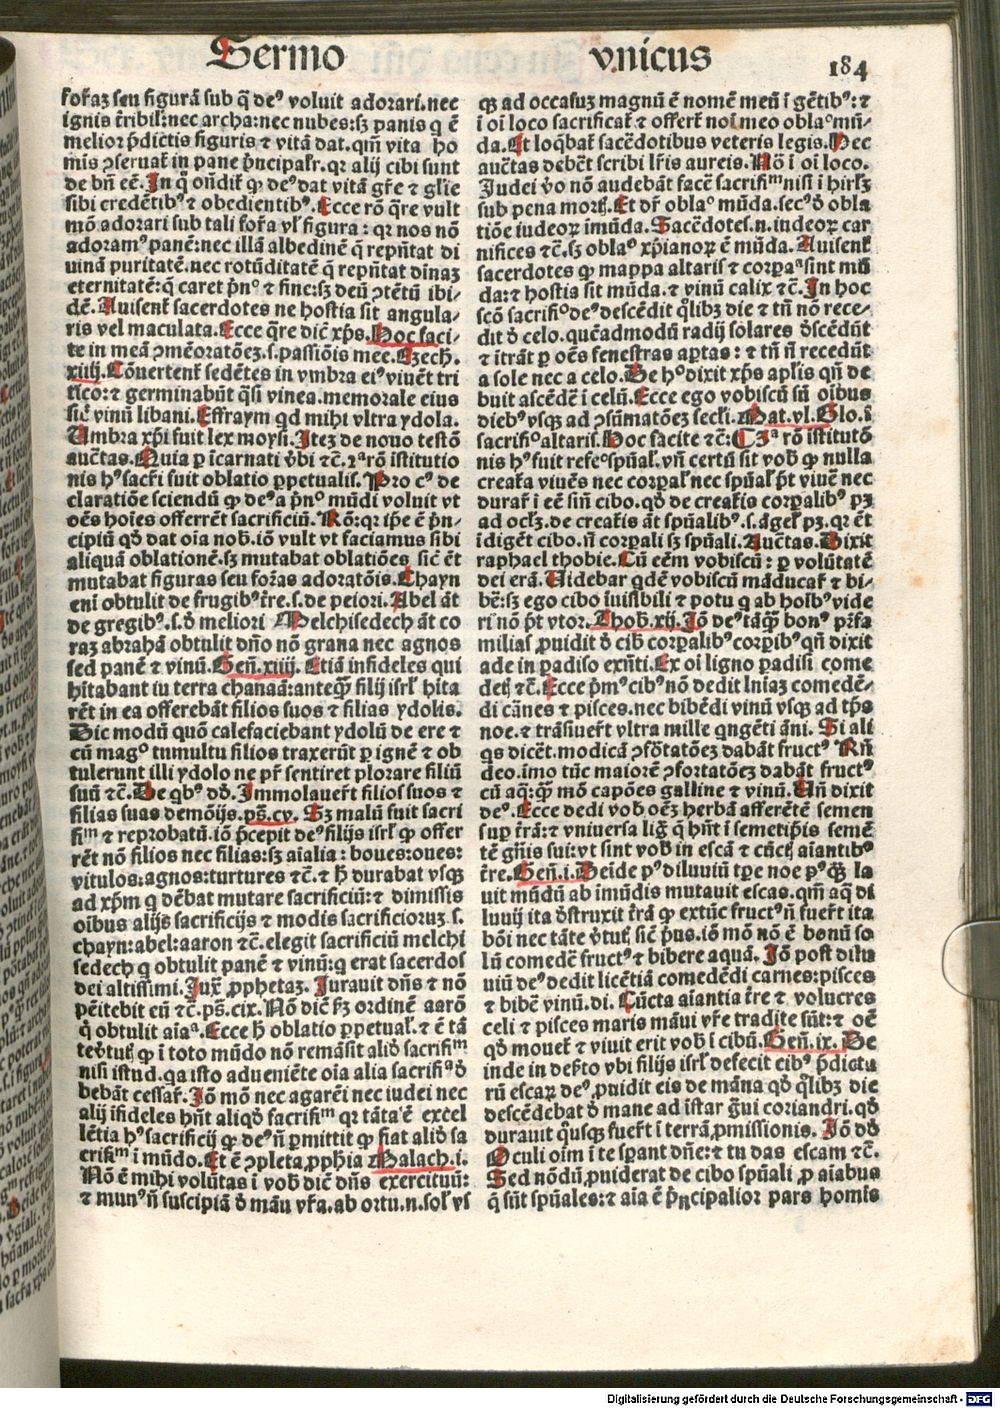 Sermo vnicus 184
formaʒ seu figurā sub q̄ deꝰ voluit adorari.nec
ignis t̄ribil:nec archa:nec nubes:sʒ panis q ē
melior p̄dictis figuris ⁊ vitā dat.qm̄ vita ho
mīs ꝯseruat̄ in pane p̄ncipalr̄.qr alij cibi sunt
de bn̄ eē.In q̊ on̄dit̄ ꝙ deꝰ dat vitā gr̄e ⁊ gl̄ie
sibi credētibꝰ ⁊ obedientibꝰ.Ecce rō q̄re vult
mō adorari sub tali forma vl̄ figura: qr nos nō
adoramꝰ panē:nec illā albedinē q̄ rep̄ntat di
uinā puritatē.nec rotūditatē q̄ rep̄ntat dīnaʒ
eternitatē:q̄ caret p̄nᵒ ⁊ fine:sʒ deū ꝯtētū ibi/
dē.Auisent̄ sacerdotes ne hostia sit angula/
ris vel maculata.Ecce q̄re dic̄ xp̄s.Hoc faci/
te in meā ꝯmēoratōeʒ.s.passiōis mee.Ezech.
xiiij.Cōuertent̄ sedētes in vmbra eiꝰ viuēt tri
tico:⁊ germinabūt q̄si vinea.memorale eius
sic̄ vinū libani.Effraym qd mihi vltra ydola.
Umbra xp̄i fuit lex moysi.Iteʒ de nouo testō
auc̄tas.Quia ꝑ īcarnati v̄bi ⁊c̄.2ᵃ rō īstitutio
nis hꝰ sacr̄i fuit oblatio ꝑpetualis.Pro cꝰ de
claratiōe sciendū ꝙ deꝰ a p̄nᵒ mūdi voluit vt
oēs hoīes offerrēt sacrificiū.Rō:qr ip̄e ē p̄n/
cipiū qd̄ dat oīa nob̄.iō vult vt faciamus sibi
aliquā oblationē.sʒ mutabat oblatiōes sic̄ ēt
mutabat figuras seu formas adoratōis.Chayn
eni obtulit de frugibꝰ t̄re.s.de peiori.Abel āt
de gregibꝰ.s.d̄ meliori Melchisedech āt co
raʒ abrahā obtulit dn̄o nō grana nec agnos
sed panē ⁊ vinū.Gen̄.xiiij.Etiā infideles qui
hītabant in terra chanaā:anteq̄ʒ filij isrl̄ hīta
rēt in ea offerebāt filios suos ⁊ filias ydolis.
Dic modū quō calefaciebant ydolū de ere ⁊
cū magᵒ tumultu filios traxerūt ꝑ ignē ⁊ ob
tulerunt illi ydolo ne pr̄ sentiret plorare filiū
suū ⁊c̄.De qbꝰ dd̄.Immolauer̄t filios suos ⁊
filias suas demōijs.ps̄.cv.Sʒ malū fuit sacri
fiᵐ ⁊ reprobatū.iō p̄cepit deꝰ filijs isrl̄ ꝙ offer
rēt nō filios nec filias:sʒ aīalia: boues:oues:
vitulos:agnos:turtures ⁊c̄.⁊ h̄ durabat vsqʒ
ad xp̄m q dēbat mutare sacrificiū:⁊ dimissis
oībus alijs sacrificijs ⁊ modis sacrificioruʒ s.
chayn:abel:aaron ⁊c̄.elegit sacrificiū melchi
sedech q obtulit panē ⁊ vinū:q erat sacerdos
dei altissimi.Iux̄ ꝓphetaʒ. Jurauit dn̄s ⁊ nō
pēitebit eū ⁊c̄.ps̄.cix.Nō dic̄ ẜʒ ordinē aarō
q̊ obtulit aīaᵃ.Ecce h̄ oblatio ꝑpetual̄.⁊ ē tā
te v̄tut̄ ꝙ i toto mūdo nō remāsit aliq̄ sacrifiᵐ
nisi istud.qa isto adueniēte oīa alia sacrifiᵃ d̄
bebāt cessar̄.Iō mō nec agarēi nec iudei nec
alij īfideles hn̄t aliqd̄ sacrifiᵐ qr tāta ē excel
lētia hꝰ sacrificij ꝙ deꝰ n̄ ꝑmittit ꝙ fiat aliqd̄ sa
crifiᵐ i mūdo.Et ē ꝯpleta ꝓphīa Malach.i.
Nō ē mihi volūtas i vob̄ dic̄ dn̄s exercituū:
⁊ munꝰ n̄ suscipiā d̄ māu vr̄a.ab ortu.n.sol̄ vs
qʒ ad occasuʒ magnū ē nomē meū i gētibꝰ:⁊
i oī loco sacrificat̄ ⁊ offert̄ noī meo oblaᵒ mū/
da.Et loqbat̄ sacēdotibus veteris legis.Hec
auc̄tas debēt scribi lr̄is aureis.Nō i oī loco.
Judei v̄o nō audebāt facē sacrifiᵐ nisi i hirl̄ʒ
sub pena mort̄.Et dr̄ oblaᵒ mūda.secꝰ d̄ obla
tiōe iudeoꝝ imūda.Sacēdotes.n.iudeoꝝ car
nifices ⁊c̄.sʒ oblaᵒ xp̄ianoꝝ ē mūda.Auisent̄
sacerdotes ꝙ mappa altaris ⁊ corꝑaᵃ sint mū
da:⁊ hostia sit mūda.⁊ vinū calix ⁊c̄.In hoc
scō sacrifiᵒ deꝰ descēdit q̄libʒ die ⁊ tn̄ nō rece/
dit d̄ celo.quēadmodū radij solares d̄scēdūt
⁊ itrāt ꝑ oēs fenestras aꝑtas: ⁊ tn̄ n̄ recedūt
a sole nec a celo.De hᵒ dixit xp̄s apl̄is qn̄ de
buit ascēdē i celū.Ecce ego vobiscū sū oībus
diebꝰ vsqʒ ad ꝯsūmatōeʒ secl̄i.Mat.vl.Glo.ī
sacrifiᵒ altaris.Hoc facite ⁊c̄.¶ 3ᵃ rō īstitutō
nis hꝰ fuit refeᵒ spūal̄.vn̄ certū sit vob̄ ꝙ nulla
creat̄a viuēs nec corꝑal̄ nec spūal̄ p̄t viuē nec
durar̄ i eē sin̄ cibo.qd̄ de creat̄is corꝑalibꝰ pʒ
ad ocl̄ʒ.de creat̄is āt spūalibꝰ.s.āgel̄ pʒ.qr ēt
īdigēt cibo.n̄ corꝑali sʒ spūali.Auc̄tas.Dixit
raphael thobie.Cū eēm vobiscū: ꝑ volūtatē
dei erā.Uidebar qdē vobiscū māducar̄ ⁊ bi/
bē:sʒ ego cibo īuisibili ⁊ potu q ab hoībꝰ vide
ri nō p̄t vtor.Thob.xij.Iō deꝰ tāq̄ʒ bonꝰ pr̄fa
milias ꝓuidit d̄ cib̄ corꝑalibꝰ corꝑibꝰ qn̄ dixit
ade in padiso exn̄ti.Ex oī ligno padisi come
det̄ ⁊c̄.Ecce p̄mꝰ cibꝰ nō dedit lniaʒ comedē/
di cānes ⁊ pisces.nec bibēdi vinū vsqʒ ad tp̄s
noe.⁊ trāsiuer̄t vltra mille qngēti āni. Si ali
qs dicēt.modicā ꝯfōtatōeʒ dabāt fructꝰ Rn̄
deo.īmo tūc maiorē ꝯfortatōeʒ dabāt fructꝰ
cū aq:q̄ʒ mō capōes galline ⁊ vinū.Un̄ dixit
deꝰ.Ecce dedi vob̄ oēʒ herbā afferētē semen
suꝑ t̄rā:⁊ vniuersa liḡ q̄ hn̄t i semetip̄is semē
tē gn̄is sui:vt sint vob̄ in escā ⁊ cūct̄ aīantibꝰ
t̄re.Gen̄.i.Deīde pꝰ diluuiū tꝑe noe pꝰqʒ la
uit mūdū ab imūdis mutauit escas.qm̄ aq̄ di
luuij ita d̄struxit t̄rā ꝙ extūc fructꝰ n̄ fuer̄t ita
bōi nec tāte v̄tut̄ sic̄ p̄us.iō mō nō ē bonū so
lū comedē fructꝰ ⁊ bibere aquā. Iō post dilu
uiū deꝰ dedit licētiā comedēdi carnes:pisces
⁊ bibē vinū.di. Cūcta aīantia t̄re ⁊ volucres
celi ⁊ pisces maris māui vr̄e tradite sūt:⁊ oē
qd̄ mouet̄ ⁊ viuit erit vob̄ i cibū.Gen̄.ix.De
inde in def̄to vbi filijs isrl̄ defecit cibꝰ p̄dictu
rū escaꝝ deꝰ ꝓuidit eis de māna qd̄ q̄libʒ die
descēdebat d̄ mane ad īstar ḡui coriandri.qd̄
durauit q̄usqʒ fuer̄t i terrā ꝓmissionis. Iō dd̄
Oculi oīm i te sꝑant dn̄e:⁊ tu das escam ⁊c̄.
Sed nōdū ꝓuiderat de cibo spūali ꝓ aīabus
q̄ sūt spūales:⁊ aīa ē p̄ncipalior pars homīs
Digitalisierung gefördert durch die Deutsche Forschungsgemeinschaft - DFG